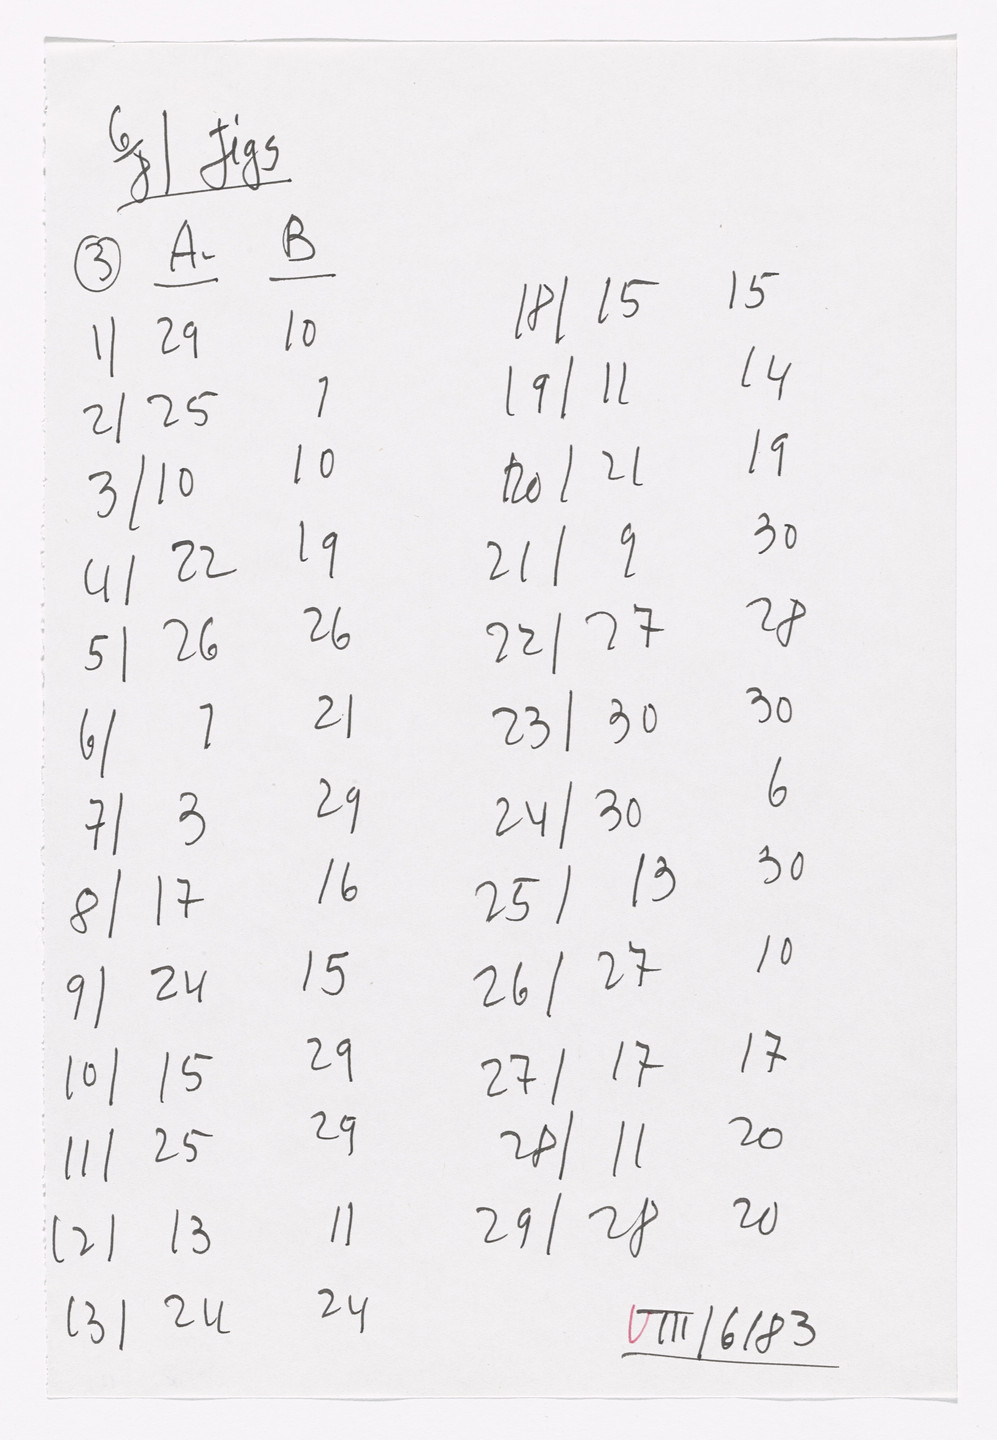 6/8/ Jigs
③ A. B
1/ 29 10
2/ 25 7
3/ 10 10
4/ 22 19
5/ 26 26
6/ 7 21
7/ 3 29
8/ 17 16
9/ 24 15
10/ 15 29
11/ 25 29
12/ 13 11
13/ 24 24
18/ 15 15
19/ 11 14
20/ 21 19
21/ 9 30
22/ 27 28
23/ 30 30
24/ 30 6
25/ 13 30
26/ 27 10
27/ 17 17
28/ 11 20
29/ 28 20
VIII/6/83